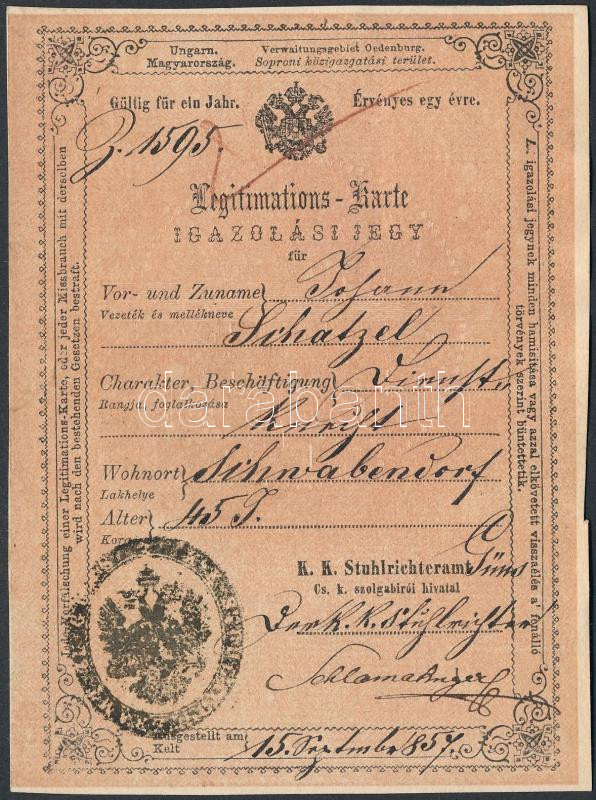 Ungarn. Verwaltungsgebiet Oedenburg.
Magyarország. Soproni közigazgatási terület.
Gültig für ein Jahr. Érvényes egy évre.
Z. 1595.
Legitimations-Karte
IGAZOLÁSI JEGY
für
Vor- und Zuname Johann
Vezeték és mellékneve
Schatzel
Charakter, Beschäftigung Dienst-
Rangja, foglalkozása
Knecht
Wohnort Schwabendorf
Lakhelye
Alter 45 J.
Kora
K. K. Stuhlrichteramt Güns
Cs. k. szolgabírói hivatal
Der k. k. Stuhlrichter
Ausgestellt am 15. September 857.
Kelt
Jede Verfälschung einer Legitimations-Karte, oder jeder Missbrauch mit derselben
wird nach den bestehenden Gesetzen bestraft.
E. igazolási jegynek minden hamisitása vagy azzal elkövetett visszaélés a' fonálló
törvények szerint büntettetik.
darabanth